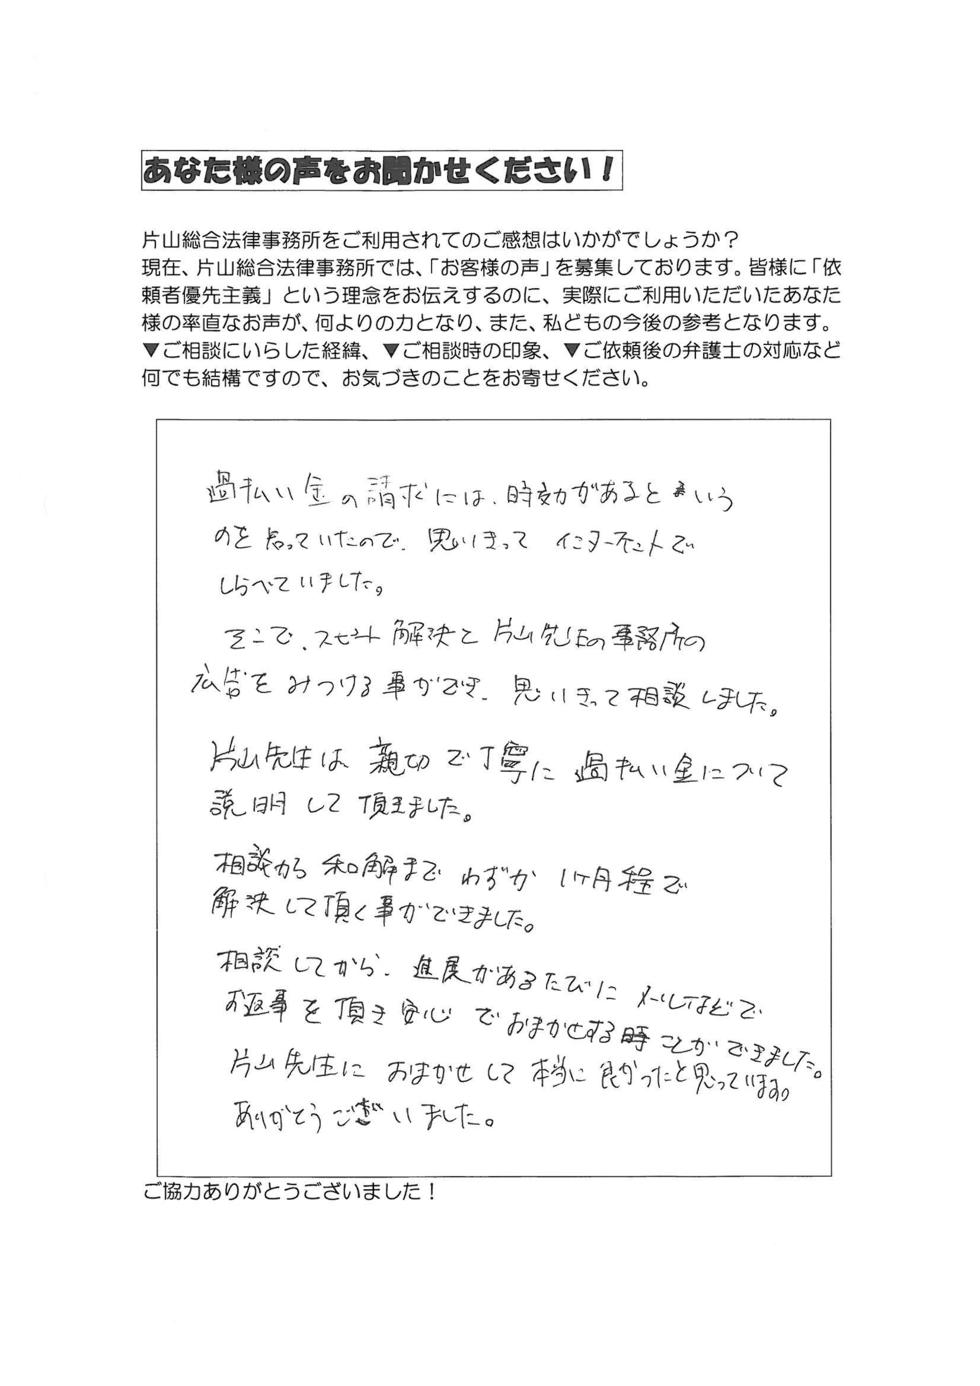 あなた様の声をお聞かせください！
片山総合法律事務所をご利用されてのご感想はいかがでしょうか？
現在、片山総合法律事務所では、「お客様の声」を募集しております。皆様に「依
頼者優先主義」という理念をお伝えするのに、実際にご利用いただいたあなた
様の率直なお声が、何よりの力となり、また、私どもの今後の参考となります。
▼ご相談にいらした経緯、▼ご相談時の印象、▼ご依頼後の弁護士の対応など
何でも結構ですので、お気づきのことをお寄せください。
過払い金の請求には、時効があるという
のを知っていたので、思いきってインターネットで
しらべていました。
そこで、スピード解決と片山先生の事務所の
広告をみつける事ができ、思いきって相談しました。
片山先生は親切で丁寧に過払い金について
説明して頂きました。
相談から和解までわずか1ヶ月程で
解決して頂く事ができました。
相談してから、進展があるたびにメールなどで
お返事を頂き安心でおまかせすることができました。
片山先生におまかせして本当に良かったと思っています。
ありがとうございました。
ご協力ありがとうございました！